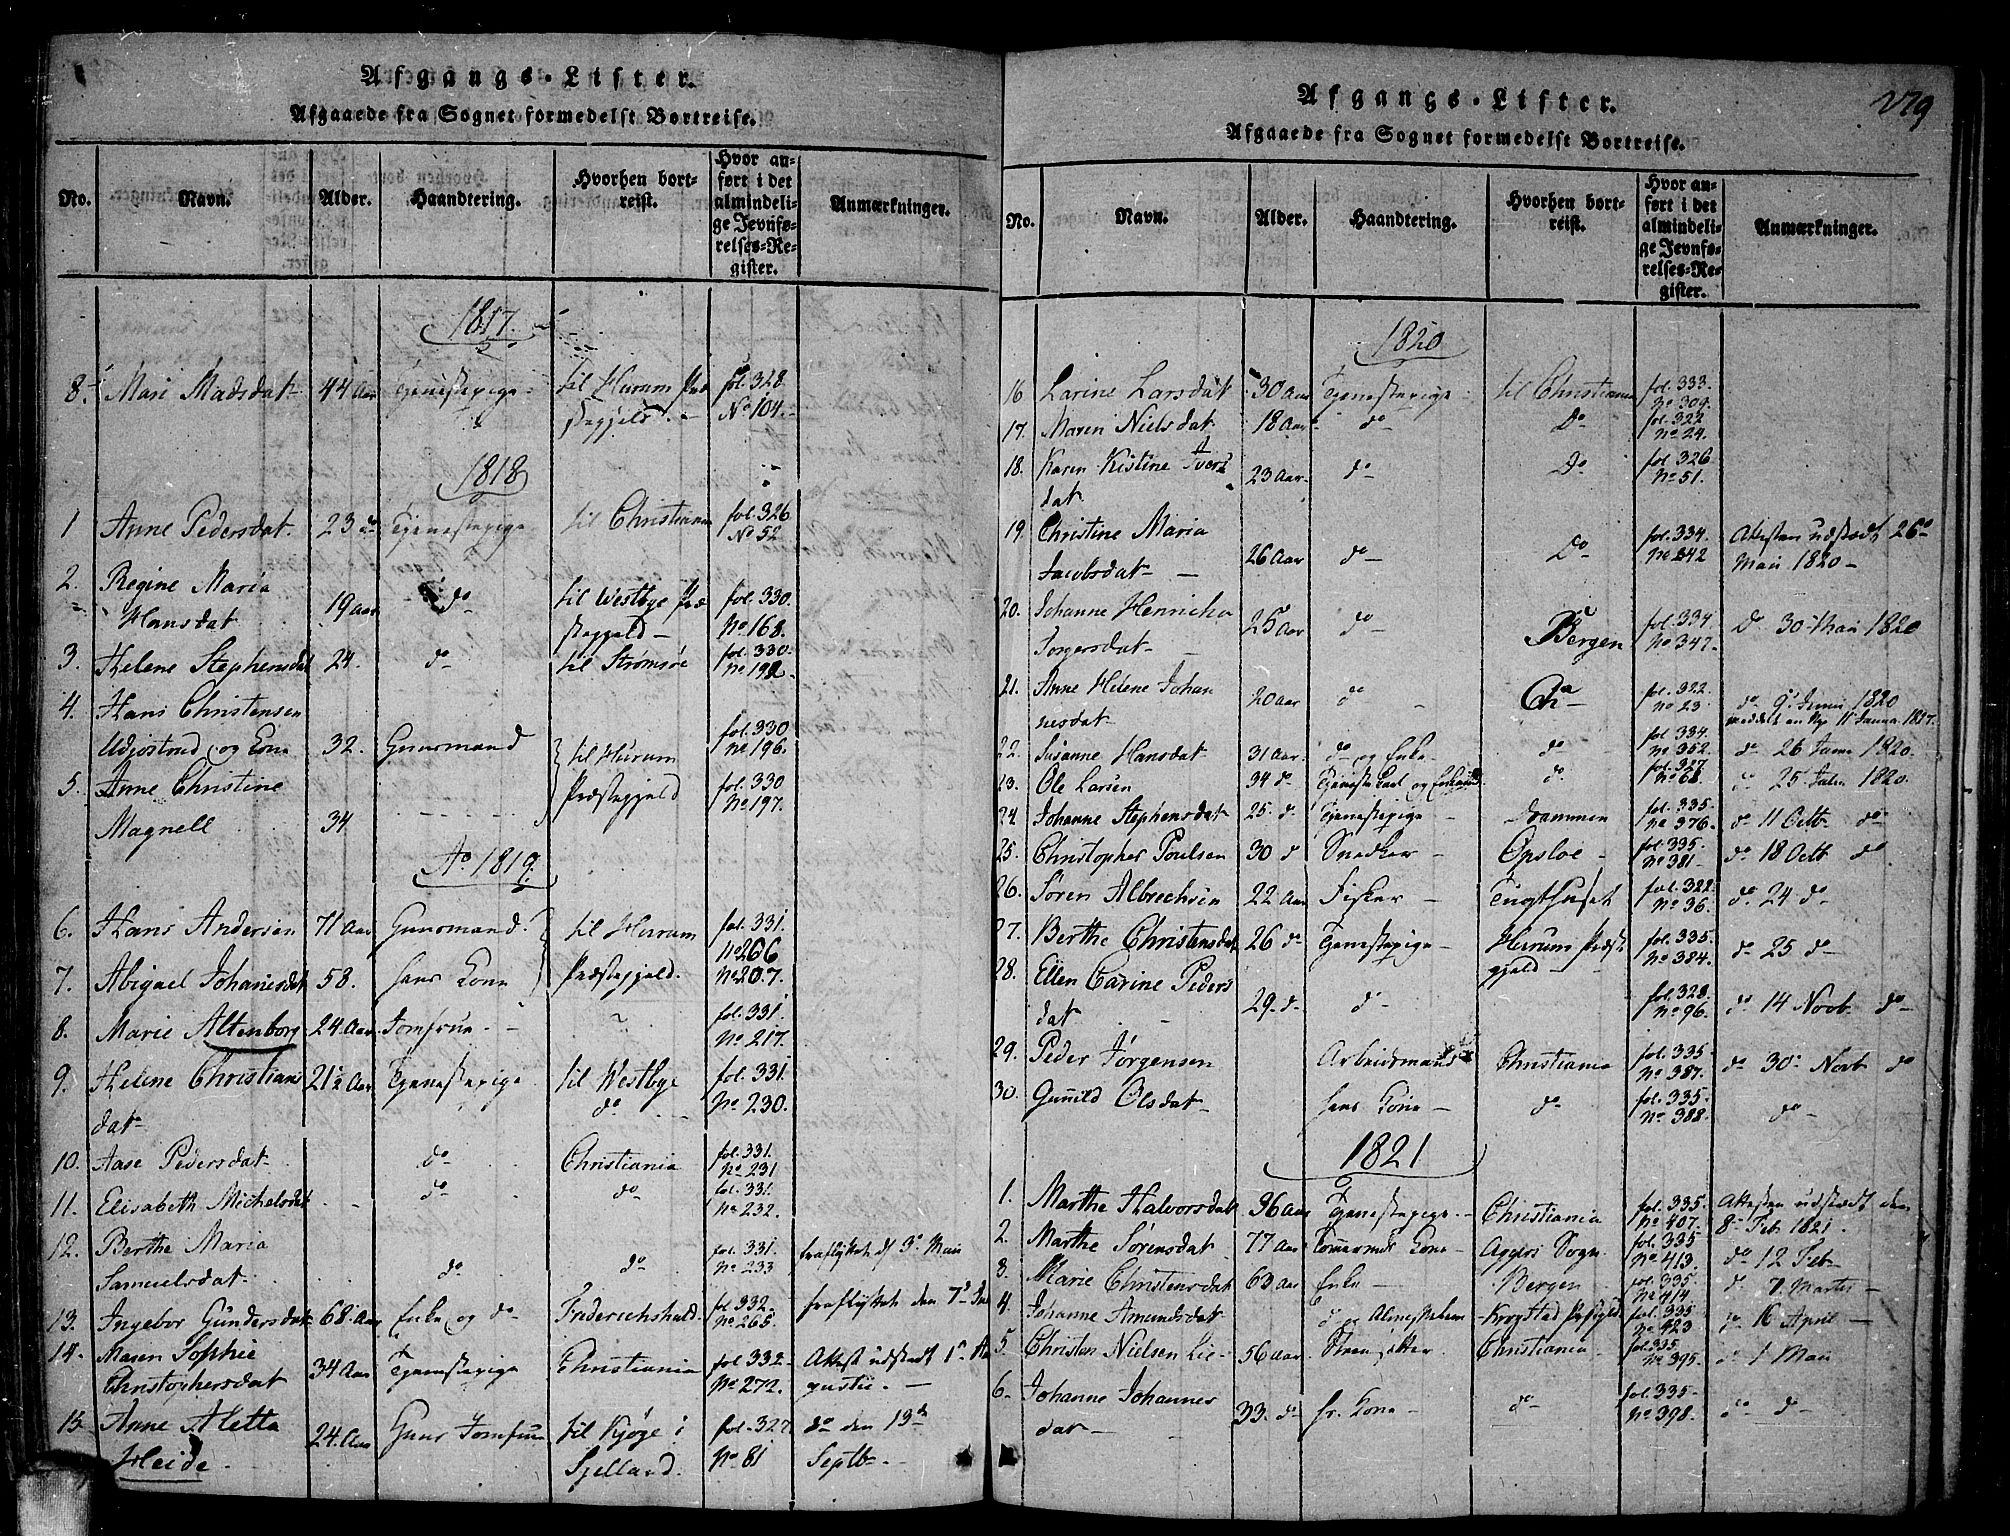 Afgangs-Lister.
Afgaaede fra Sognet formedelst Bortreise.
No. Navn. Alder. Haandtering. Hvorhen bortreist. Hvor anført i det almindelige Jevnførelses-Register. Anmærkninger.
1817.
8. Mari Madsdat 44 Aar Tjenestepige til Hurum Præ fol. 328
stegjeld No 104.
1818
1 Anne Pedersdat. 23 do Tjenestepige til Christiania fol. 326
No 52
2. Regine Maria
Hansdat 19 Aar do til Westbye Præ fol. 330.
stegjeld No 168.
3. Helene Stephensdat 24. do til Strømsøe fol. 330
No 192.
4. Hans Christensen
og Kone 32. Gaardmand til Hurum fol. 330 No 196.
5. Anne Christine Præstegjeld fol. 330
Magnell 34 No 197.
Ao 1819.
6. Hans Andersen 71 Aar Gaardmand. til Hurum fol. 331.
No 266
7. Abigael Johanesdat 58. hans Kone Præstegjeld. No 207.
8. Marie Altenborg 24 Aar Jomfrue fol. 331
No 217.
9. Helene Christians 21½ Aar Tjenestepige til Westbye fol. 331.
dat do No 230.
10. Aase Pedersdat do Christiania fol. 331.
No 231
11. Elisabeth Michelsdat do do fol. 331.
No 232.
12. Berthe Maria fol. 331. fraflyttet d 3 Maii
Samuelsdat. do do No 233
13. Ingebor Gundersdat 68 Aar Enke og do Friderichshald fol 332. fraflyttet den 7
No 265.
14. Maren Sophie 34 Aar Tjenestepige Christiania fol 332 Attest udstædt 1 Au
Christophersdat No 272. gustii.
15 Anne Aletta 24 Aar Jomfrue til Kjøge i fol. 327 do den 19d
Heide Sjelland. No 81 Septb
Afgangs-Lister.
279
Afgaaede fra Sognet formedelst Bortreise.
No. Navn. Alder. Haandtering. Hvorhen bortreist. Hvor anført i det almindelige Jevnførelses-Register. Anmærkninger.
1820
16 Larine Larsdat 30 Aar Tjenestepige til Christiania fol. 333.
No 309.
17. Maren Nielsdat 18 Aar do Do fol. 322
No 24.
18. Karen Kistine Ivers 23 Aar do Do fol. 326
dat No 51.
19. Christine Maria fol. 334. Attesten udstædt 26
Jacobsdat 26 Aar do Do No 342 Maii 1820
20. Johanne Henricha 25 Aar do Bergen fol. 334 D 30 Maii 1820
Torgersdat No 347.
21. Anne Helene Johan 20 Aar do fol. 322. do 9 Junii 1820
nesdat No 23 meddelt en Np. 11 Janua. 1837.
22. Susanne Hansdat 31 Aar do og Enke do fol 334. do 26 Juni 1820.
No 352
23. Ole Larsen 34 do Tjeneste Karl og do fol. 327. d 25 Julii 1820.
No 68
24 Johanne Stephensdat 25 d. Tjenestepige Drammen fol. 335. do 11 Octb do
No 376.
25. Christopher Poulsen 30 d Snedker Opsloe fol. 335. do 18 Octb do
No 381
26. Søren Albrechsen 22 Aar Fisker Tugthuset fol. 322 do 24 do
No 36.
27. Berthe Christensdat 26 do Tjenestepige Hurum Præste fol. 335. do 25 do
gjeld No 384.
28. Ellen Carine Peders fol. 328. do 14 Novb do
dat 29 d do No 96.
29. Peder Jørgensen Arbeidsmand Christiania fol. 335 do 30 Novb do
No 387.
30. Gunild Olsdat hans Kone do fol. 335. do
No 388.
1821
1. Marthe Halvorsdat 36 Aar Tjenestepige Christiania fol. 335. Attesten udstædt den
No 407. 8 Feb. 1821.
2. Marthe Sørensdat 77 Aar Kone Aggers Sogn fol. 335 do 12 Feb
No 413.
3. Marie Christensdat 63 Aar Enke Bergen fol. 335. d 7 Martii
No 414
4. Johanne Amundsdat Krogstad fol. 335 do 16 April
No 423
5. Christen Nielsen Lie 56 Aar. Christiania fol. 335 d 1 Maii
No 395.
6. Johanne Johannes 33. do hs. Kone do fol. 335 do d
dat No 398.